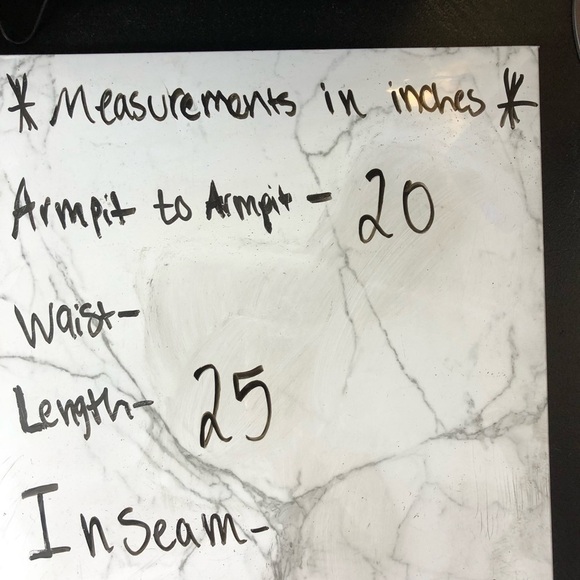 * Measurements in inches *
Armpit to Armpit - 20
Waist-
Length- 25
Inseam-